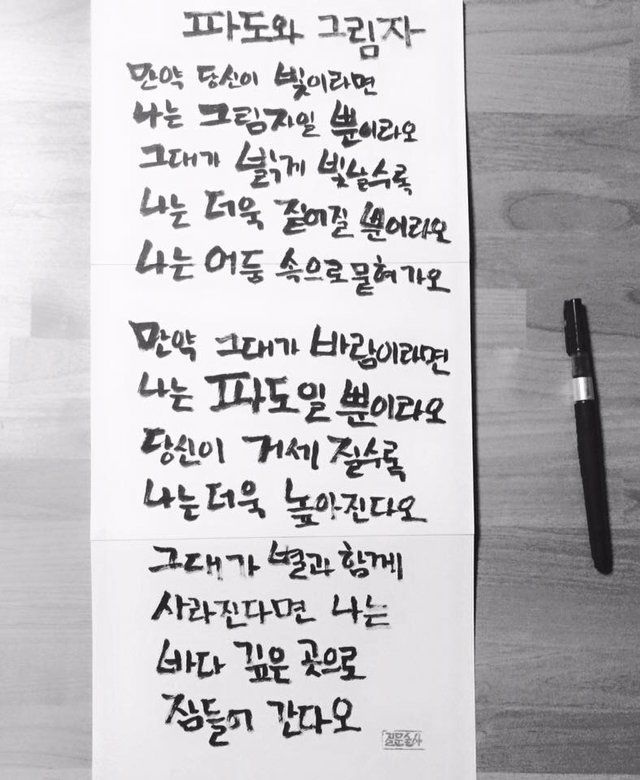 파도와 그림자
만약 당신이 빛이라면
나는 그림자일 뿐이라오
그대가 밝게 빛날수록
나는 더욱 짙어질 뿐이라오
나는 어둠 속으로 묻혀가오
만약 그대가 바람이라면
나는 파도일 뿐이라오
당신이 거세 질수록
나는 더욱 높아진다오
그대가 별과 함께
사라진다면 나는
바다 깊은 곳으로
잠들어 간다오